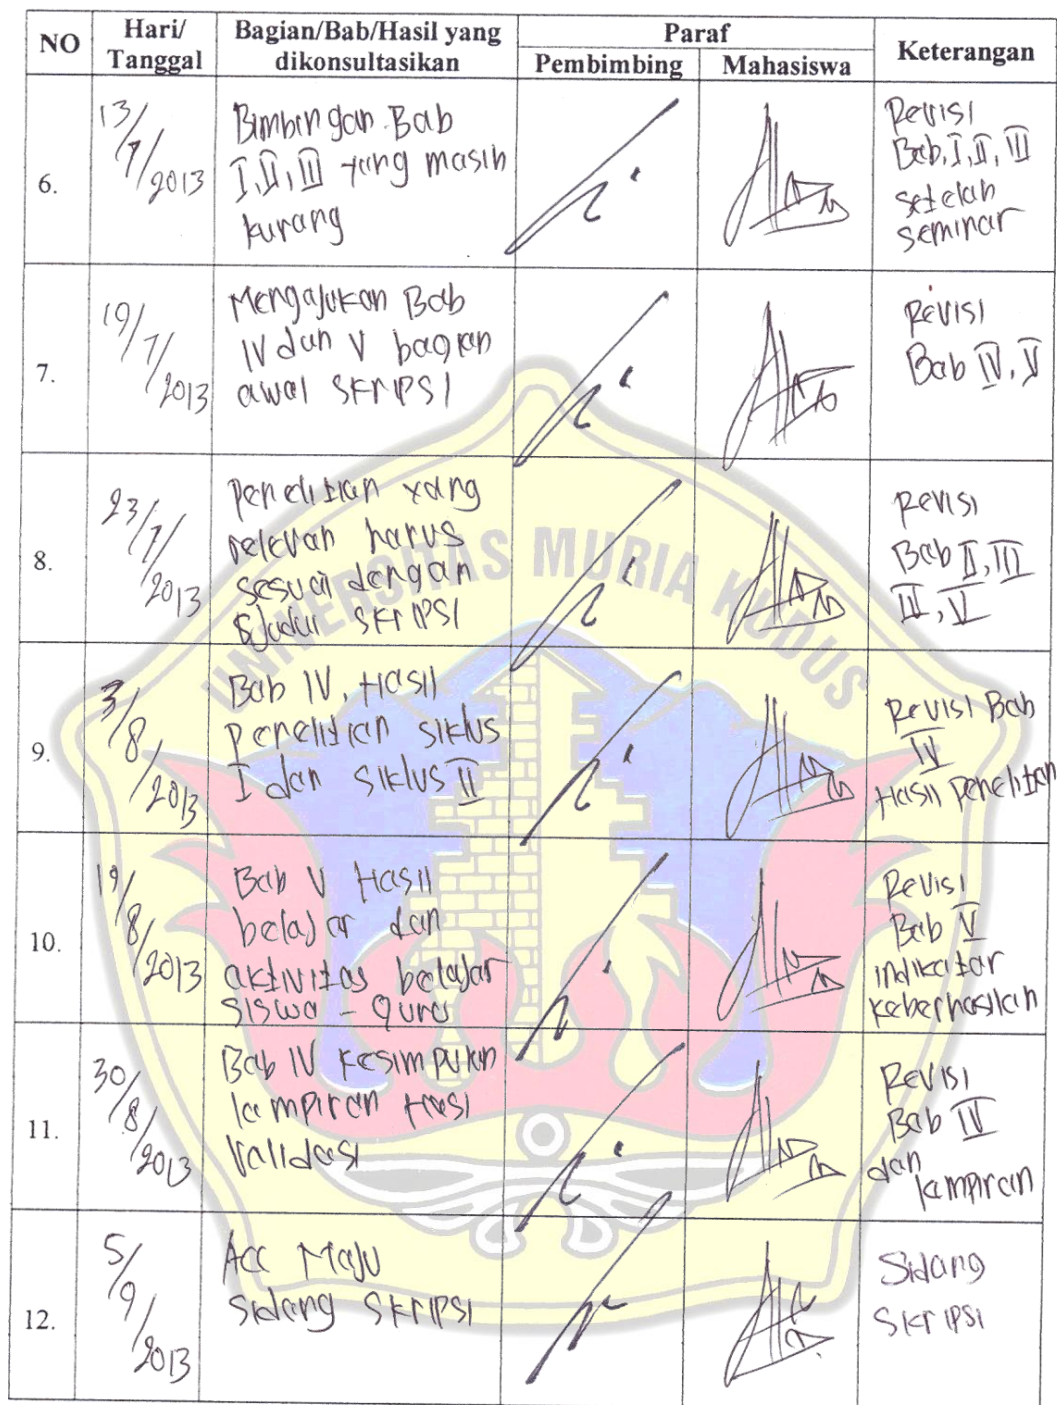 NO
Hari/
Tanggal
Bagian/Bab/Hasil yang
dikonsultasikan
Paraf
Pembimbing
Mahasiswa
Keterangan
6.
13/7/2013
Bimbingan Bab
I, II, III yang masih
kurang
Revisi
Bab, I, II, III
setelah
seminar
7.
19/7/2013
Mengajukan Bab
IV dan V bagian
awal SKRIPSI
Revisi
Bab IV, V
8.
23/7/2013
penelitian yang
relevan harus
sesuai dengan
judul SKRIPSI
Revisi
Bab II, III
III, V
9.
3/8/2013
Bab IV, Hasil
penelitian siklus
I dan siklus II
Revisi Bab
IV
Hasil penelitan
10.
19/8/2013
Bab V Hasil
belajar dan
aktivitas belajar
siswa - Guru
Revisi
Bab V
indikator
keberhasilan
11.
30/8/2013
Bab IV kesimpulan
lampiran Hasi
Validasi
Revisi
Bab IV
dan
lampiran
12.
5/9/2013
Acc Maju
sidang SKRIPSI
Sidang
SKRIPSI
UNIVERSITAS MURIA KUDUS